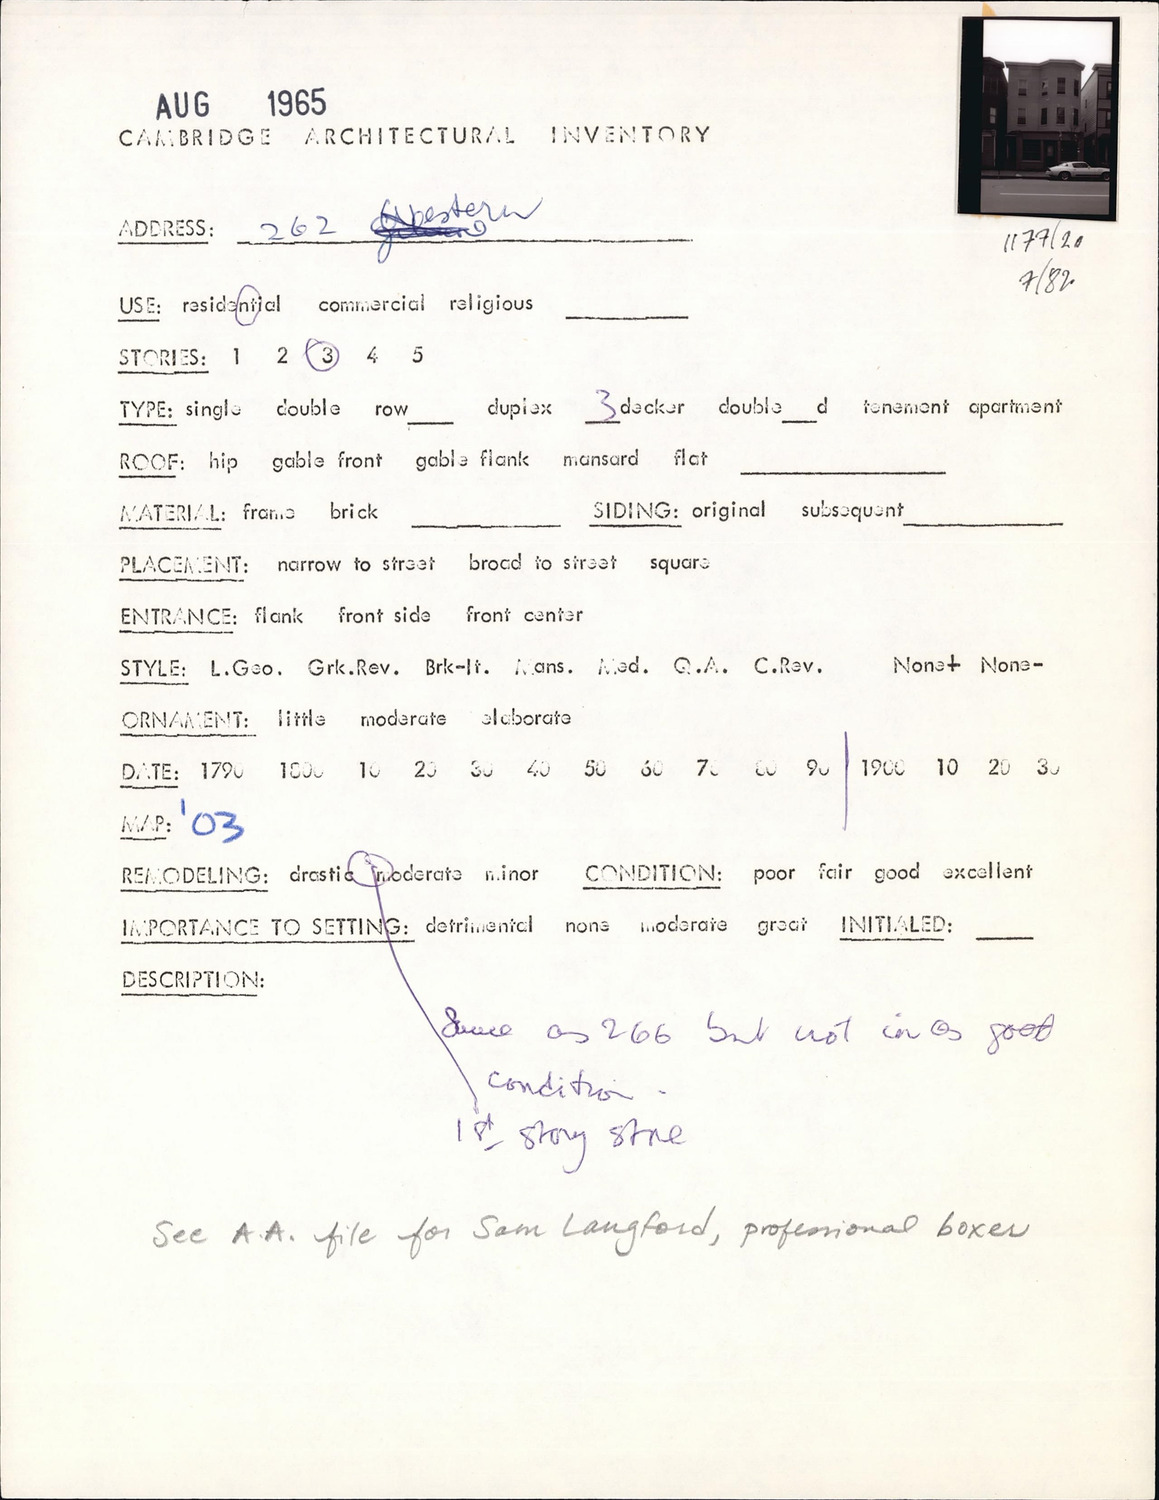 AUG 1965
CAMBRIDGE ARCHITECTURAL INVENTORY
ADDRESS: 262 Western
1177/20
7/82
USE: residential commercial religious
STORIES: 1 2 3 4 5
TYPE: single double row____ duplex 3 decker double____d tenement apartment
ROOF: hip gable front gable flank mansard flat
MATERIAL: frame brick ____ SIDING: original subsequent____
PLACEMENT: narrow to street broad to street square
ENTRANCE: flank front side front center
STYLE: L.Geo. Grk.Rev. Brk-It. Mans. Med. Q.A. C.Rev. None+ None-
ORNAMENT: little moderate elaborate
DATE: 1790 1800 10 20 30 40 50 60 70 80 90 1900 10 20 30
MAP: '03
REMODELING: drastic moderate minor CONDITION: poor fair good excellent
IMPORTANCE TO SETTING: detrimental none moderate great INITIALED: ____
DESCRIPTION:
Same as 266 but not in as good
condition.
1st story store
See A.A. file for Sam Langford, professional boxer